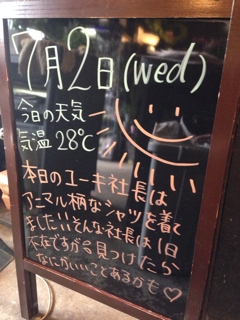 7月2日(wed)
今日の天気
気温 28℃
本日のユーキ社長は
アニマル柄なシャツを着て
ましたいそんな社長は1日
不在ですが見つけたら
なにかいいことあるかも♡